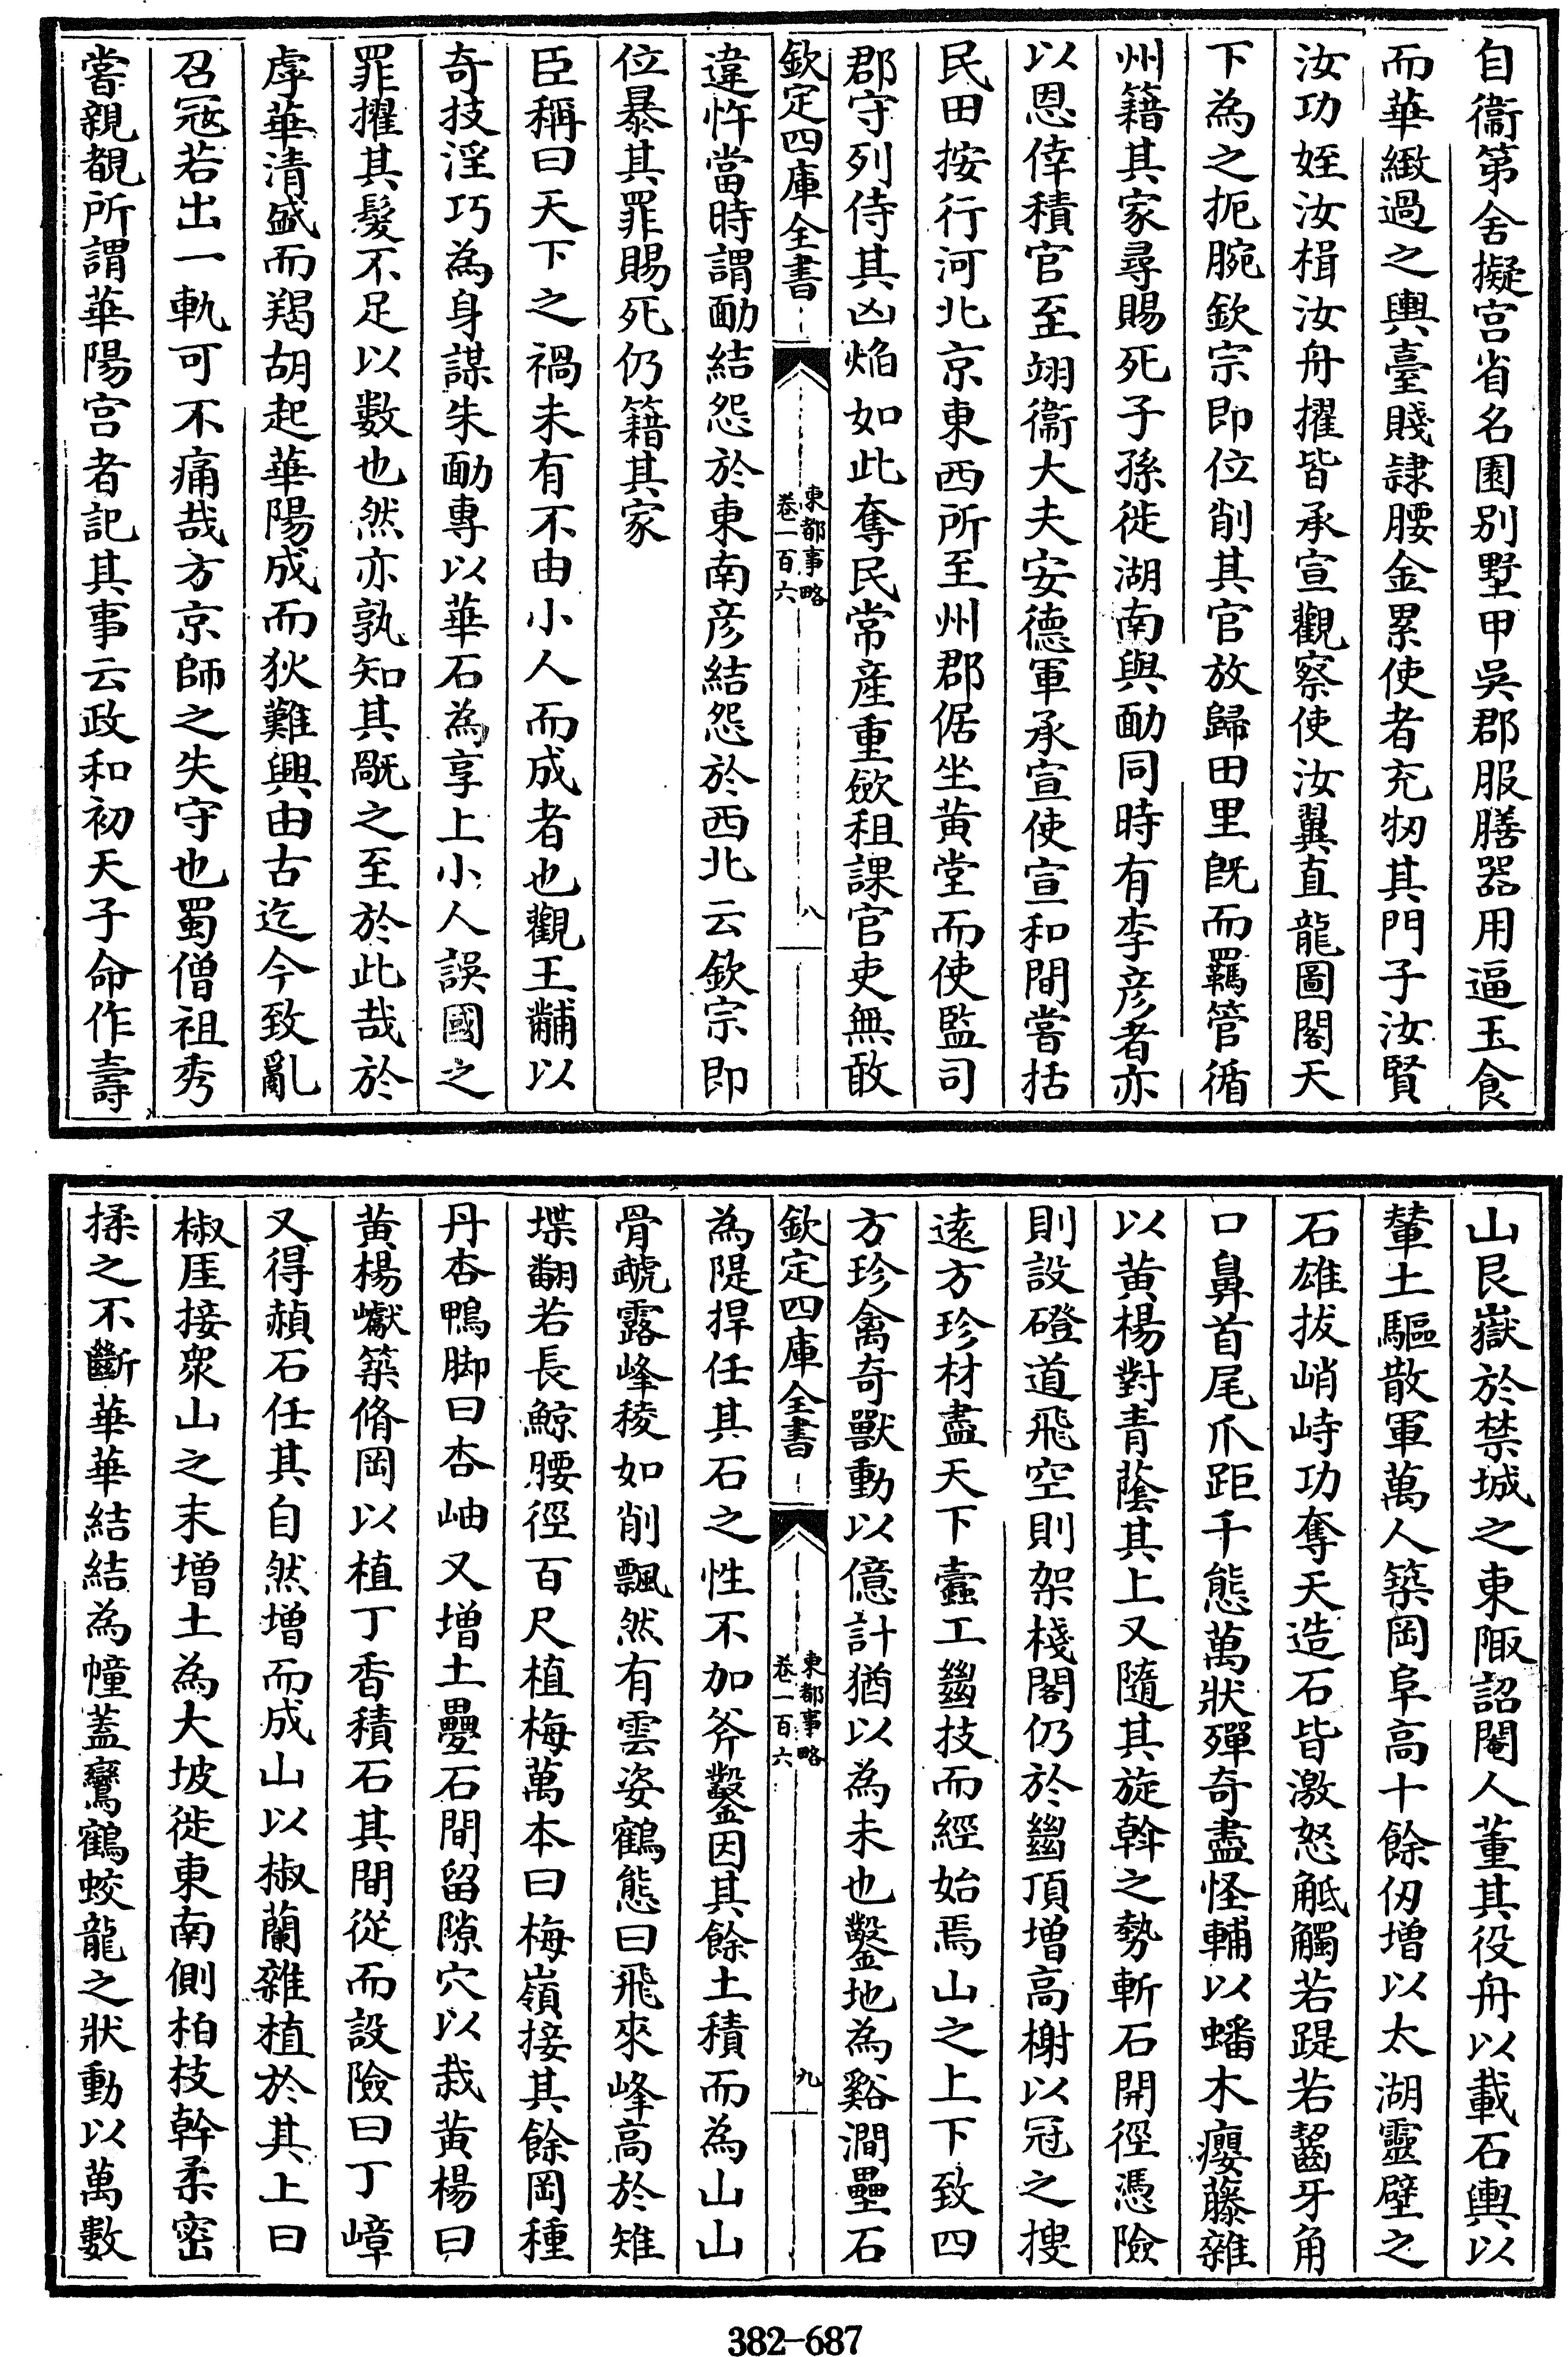 自衞第舍擬宫省名園别墅甲吳郡服膳器用逼玉食
而華緻過之輿臺賤隷腰金累使者充牣其門子汝賢
汝功姪汝楫汝舟擢皆承宣觀察使汝翼直龍圖閣天
下為之扼腕欽宗即位削其官放歸田里既而羈管循
州籍其家尋賜死子孫徙湖南與勔同時有李彦者亦
以恩倖積官至翊衞大夫安德軍承宣使宣和間嘗括
民田按行河北京東西所至州郡倨坐黄堂而使監司
郡守列侍其凶焰如此奪民常産重斂租課官吏無敢
欽定四庫全書
東都事略
卷一百六
八
違忤當時謂勔結怨於東南彦結怨於西北云欽宗即
位暴其罪賜死仍籍其家
臣稱曰天下之禍未有不由小人而成者也觀王黼以
奇技淫巧為身謀朱勔專以華石為享上小人誤國之
罪擢其髮不足以數也然亦孰知其翫之至於此哉於
虖華清盛而羯胡起華陽成而狄難興由古迄今致亂
召寇若出一軌可不痛哉方京師之失守也蜀僧祖秀
嘗親覩所謂華陽宫者記其事云政和初天子命作壽
山艮嶽於禁城之東陬詔閹人董其役舟以載石輿以
輦土驅散軍萬人築岡阜高十餘仞增以太湖靈壁之
石雄拔峭峙功奪天造石皆激怒觝觸若踶若齧牙角
口鼻首尾爪距千態萬狀殫奇盡怪輔以蟠木癭藤雜
以黄楊對青蔭其上又隨其旋斡之勢斬石開徑憑險
則設磴道飛空則架棧閣仍於巒頂增高榭以冠之搜
逺方珍材盡天下蠹工巒技而經始焉山之上下致四
方珍禽奇獸動以億計猶以為未也鑿地為谿澗壘石
欽定四庫全書
東都事略
卷一百六
九
為隄捍任其石之性不加斧鑿因其餘土積而為山山
骨虣露峰稜如削飄然有雲姿鶴態曰飛來峰高於雉
堞翻若長鯨腰徑百尺植梅萬本曰梅嶺接其餘岡種
丹杏鴨脚曰杏岫又增土疊石間留隙穴以栽黄楊曰
黄楊巘築脩岡以植丁香積石其間從而設險曰丁嶂
又得赬石任其自然增而成山以椒蘭雜植於其上曰
椒厓接衆山之末增土為大坡徙東南側柏枝幹柔密
揉之不斷華華結結為幢蓋鸞鶴蛟龍之狀動以萬數
382-687